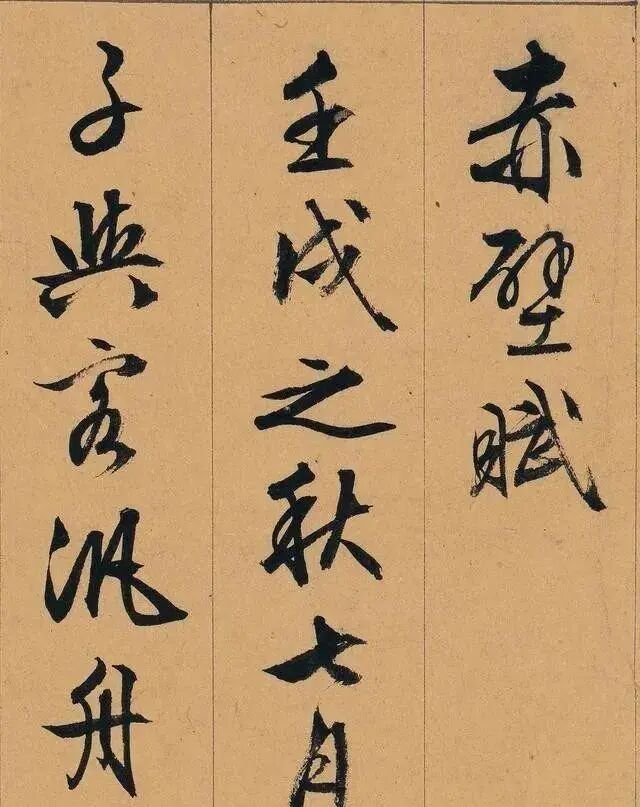 赤壁賦
壬戌之秋七月
子與客汎舟